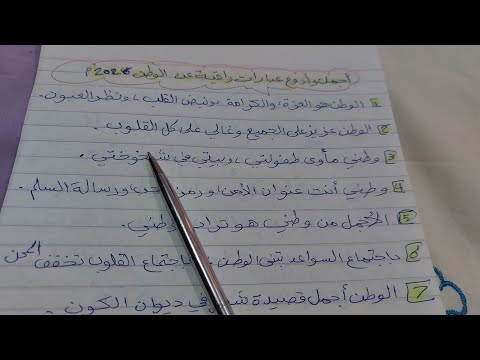 أجمل وأروع عبارات راقية عن الوطن 2026م
1 الوطن هو العزة، والكرامة ونبض القلب، ونظر العيون.
2 الوطن عزيز على الجميع وغالي على كل القلوب.
3 وطني مأوى طفولتي، وبيتي في شيخوختي.
4 وطني أنت عنوان الأمن و رمز ورسالة السلم.
5 الأجمل من وطني هو وطني.
6 باجتماع السواعد تبنى الوطن باجتماع القلوب تخفف المحن
7 الوطن أجمل قصيدة في ديوان الكون.